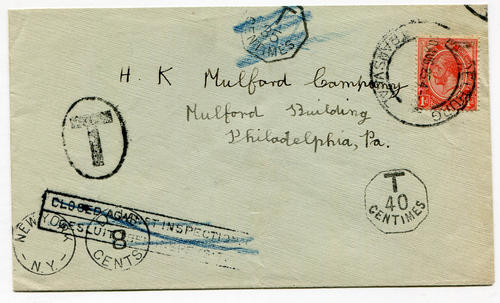 T
35
CENTIMES
TRANSVAAL
1d
H. K Mulford Company
Mulford Building
Philadelphia, Pa.
T
T
40
CENTIMES
CLOSED AGAINST INSPECTION
NEW YORK
N.Y.
8
CENTS